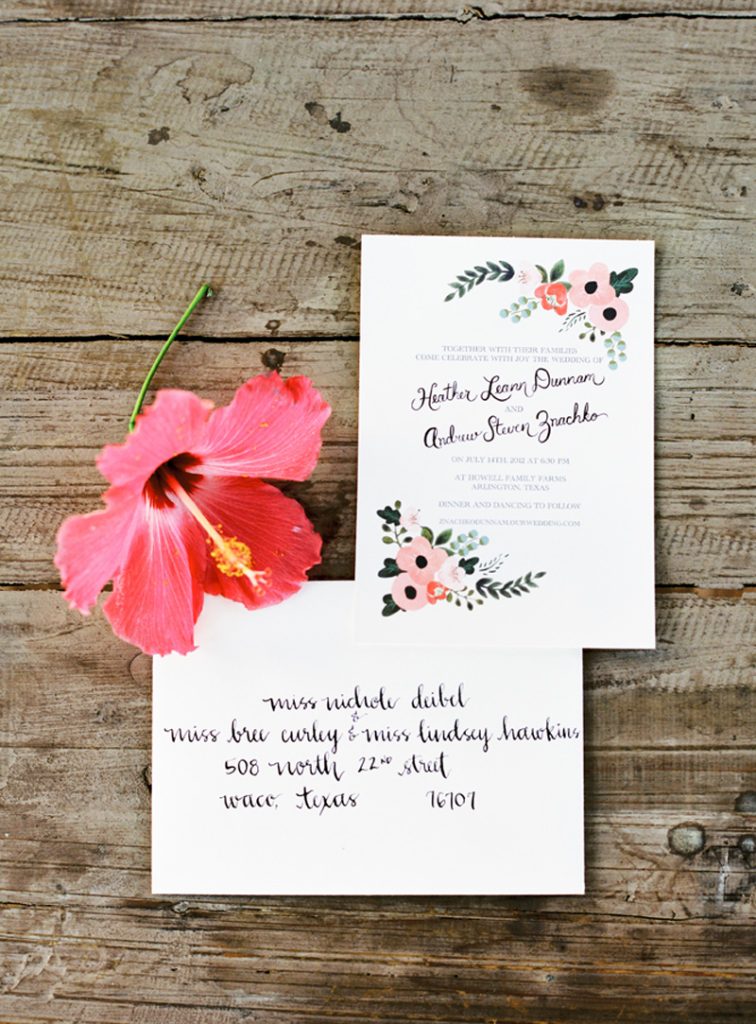 TOGETHER WITH THEIR FAMILIES
COME CELEBRATE WITH JOY THE WEDDING OF
Heather Leann Dunnam
AND
Andrew Steven Znachko
ON JULY 14TH, 2012 AT 6:30 PM
AT HOWELL FAMILY FARMS
ARLINGTON, TEXAS
DINNER AND DANCING TO FOLLOW
ZNACHKODUNNAM.OURWEDDING.COM
miss nichole deibel
&
miss bree curley & miss lindsey hawkins
508 north 22ND street
waco, texas 76707